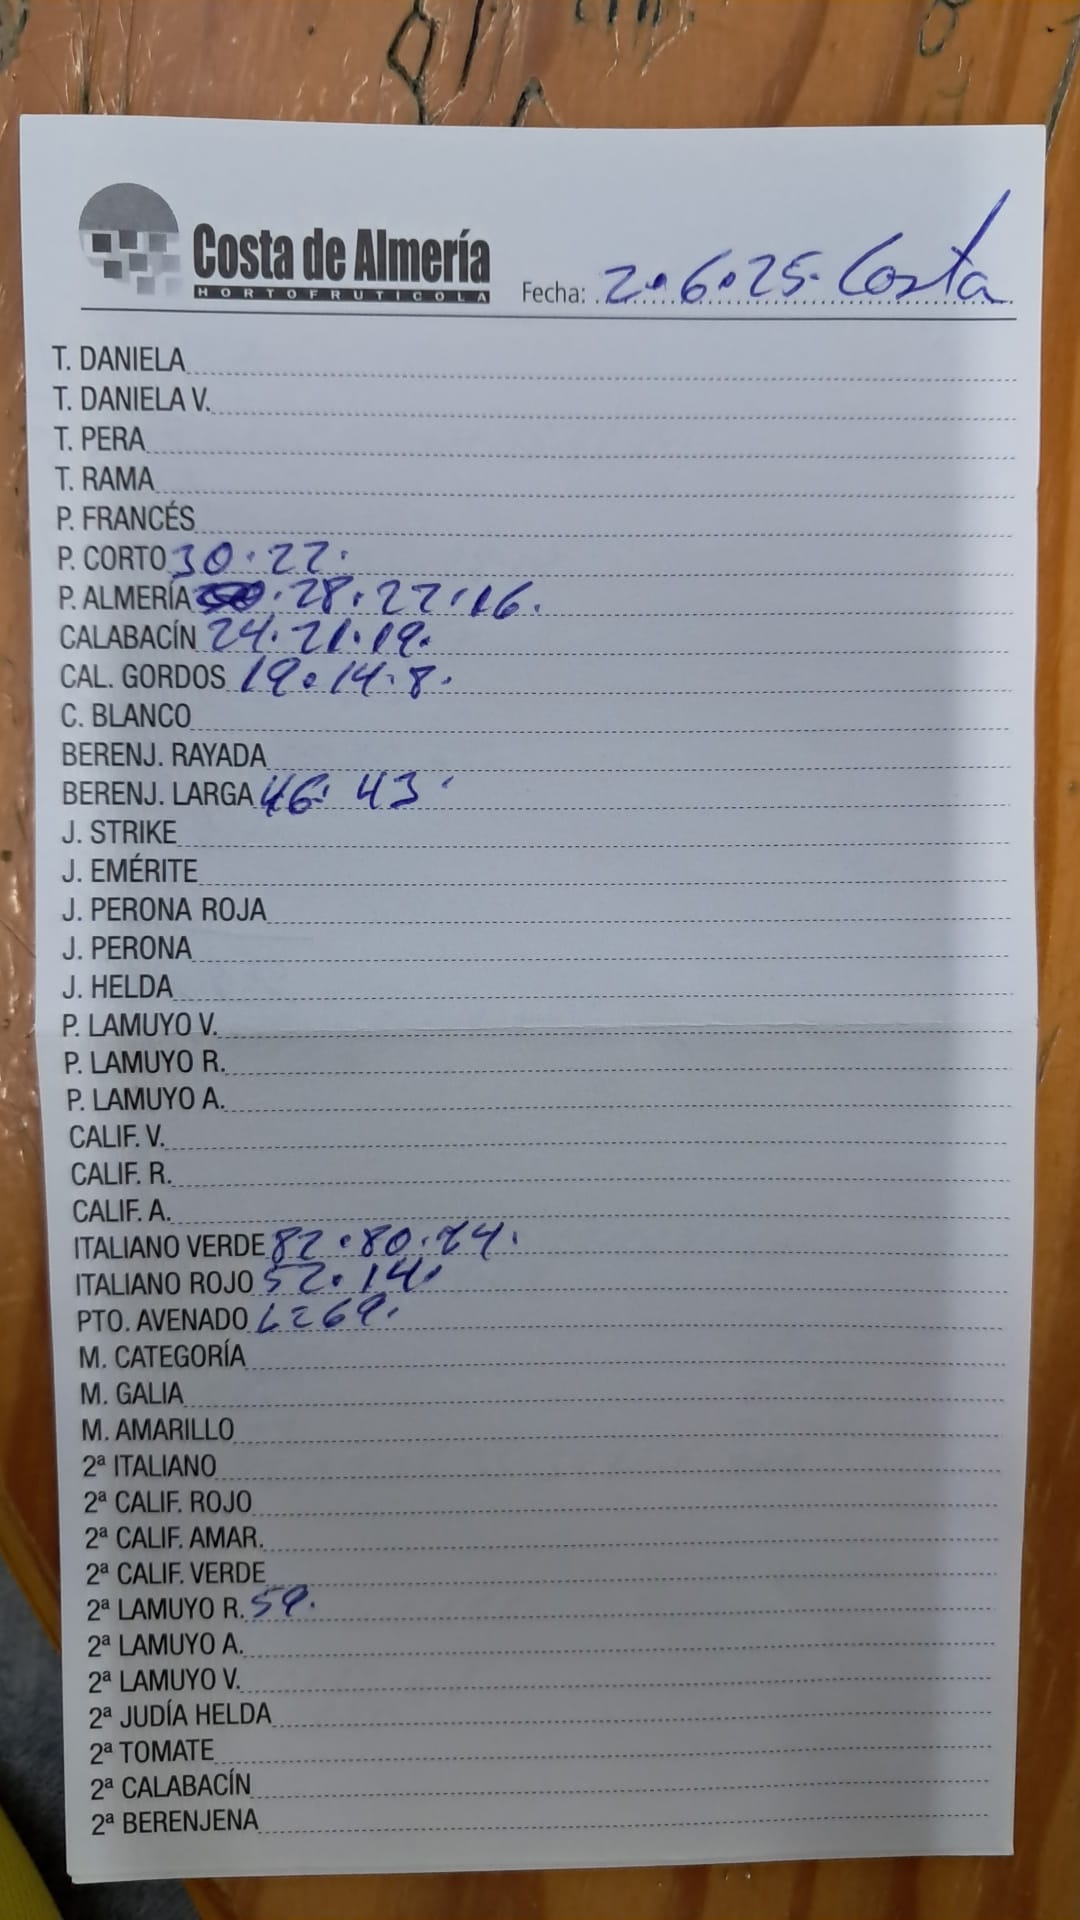 Costa de Almería
HORTOFRUTICOLA
Fecha: 2.6.25. Costa
T. DANIELA
T. DANIELA V.
T. PERA
T. RAMA
P. FRANCÉS
P. CORTO 30.22.
P. ALMERÍA .28.22.16.
CALABACÍN 24.21.19.
CAL. GORDOS 19.14.8.
C. BLANCO
BERENJ. RAYADA
BERENJ. LARGA 46. 43.
J. STRIKE
J. EMÉRITE
J. PERONA ROJA
J. PERONA
J. HELDA
P. LAMUYO V.
P. LAMUYO R.
P. LAMUYO A.
CALIF. V.
CALIF. R.
CALIF. A.
ITALIANO VERDE 82.80.74.
ITALIANO ROJO 52.14.
PTO. AVENADO L 69.
M. CATEGORÍA
M. GALIA
M. AMARILLO
2ª ITALIANO
2ª CALIF. ROJO
2ª CALIF. AMAR.
2ª CALIF. VERDE
2ª LAMUYO R. 59.
2ª LAMUYO A.
2ª LAMUYO V.
2ª JUDÍA HELDA
2ª TOMATE
2ª CALABACÍN
2ª BERENJENA